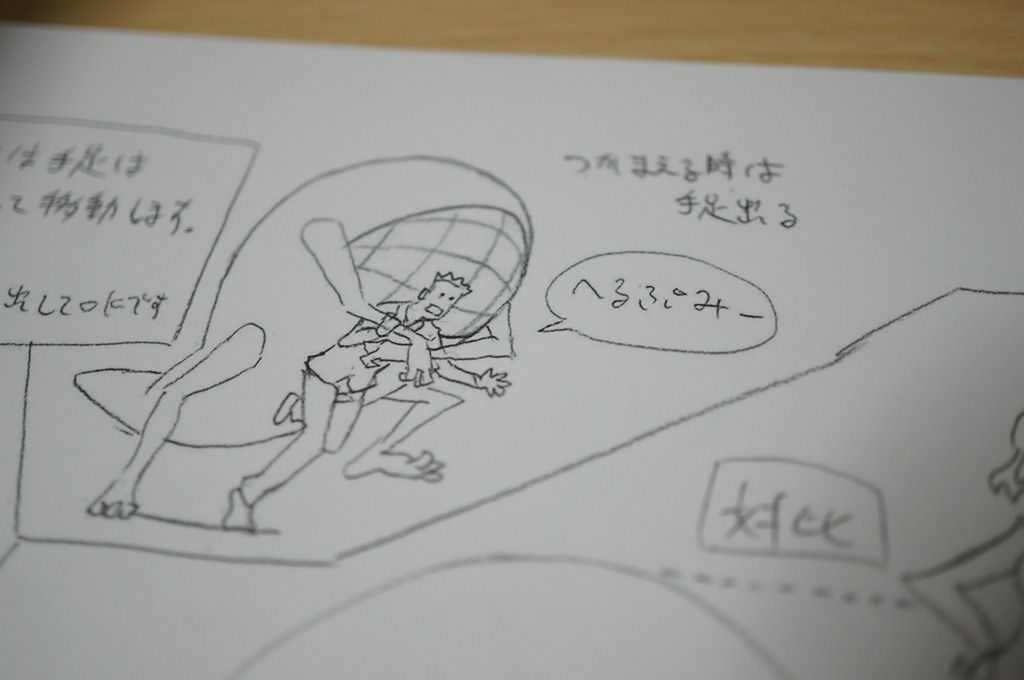 は手足は
て移動します。
出してOKです
つかまえる時は
手足出る
へるぷみー
対比